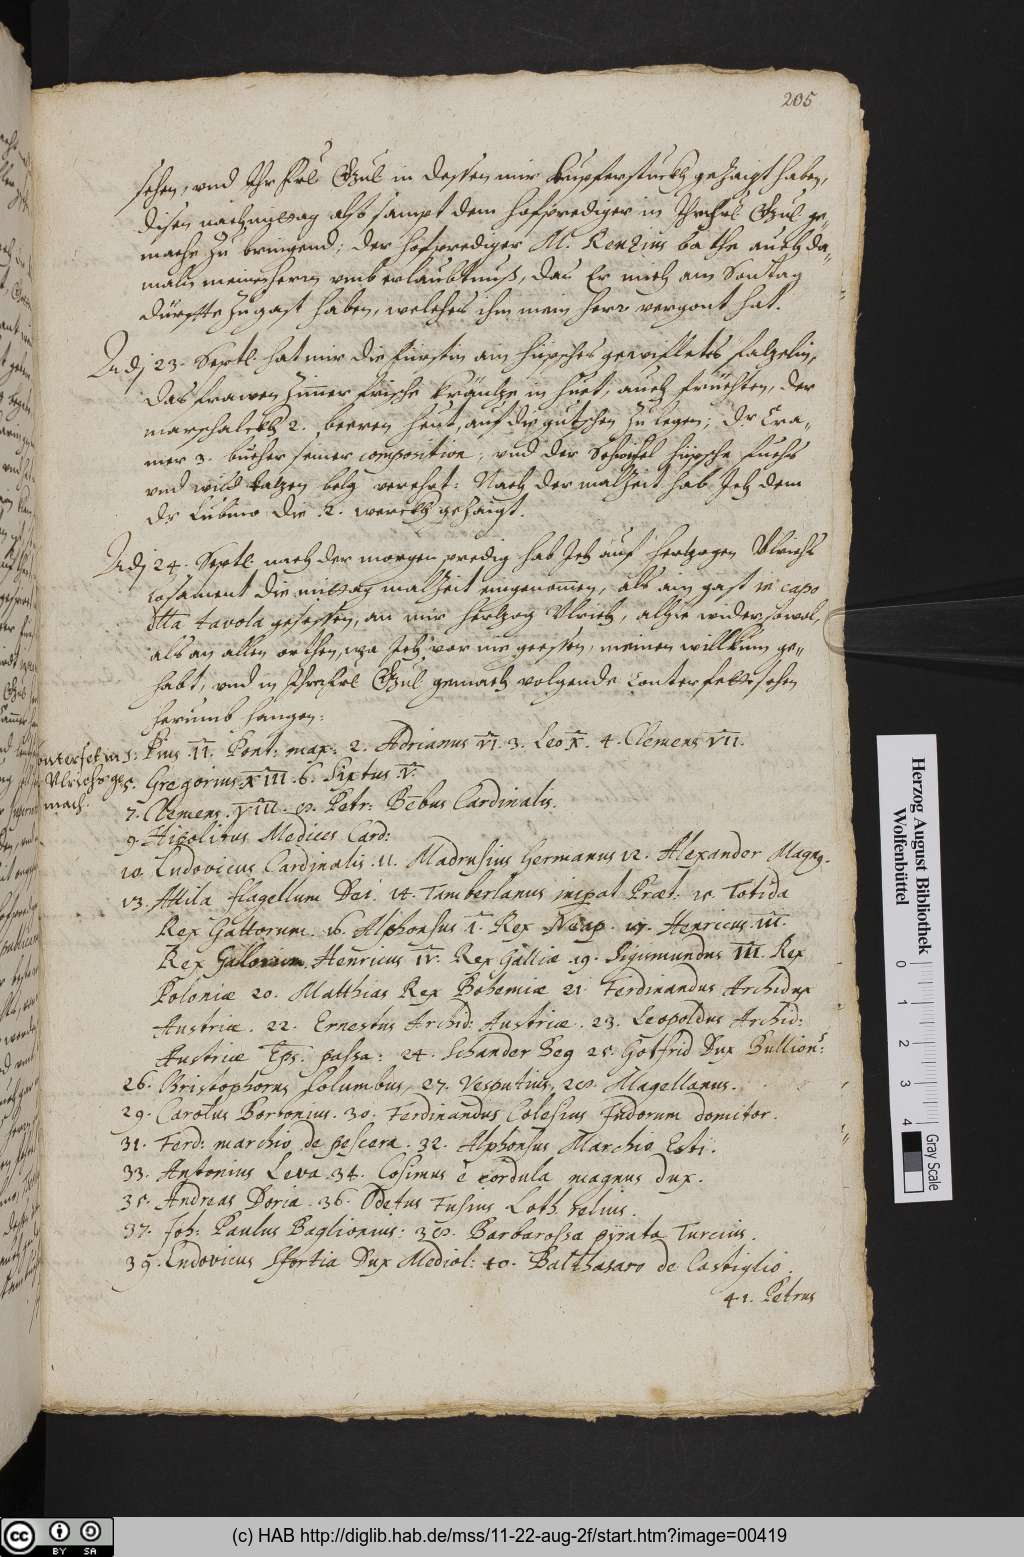 205
sehen, vnd Ihr Frl. Gnl in dessen mir Kupferstuckh gezaigt haben,
disen nachmittag alß sampt dem hofprediger in Ihr Frl Gnl ge„
mach zu bringend; der hofprediger M. Renzius bathe auch da„
maln meinen herrn vmb erlaubtnuß, das Er mich am Sontag
dürffte zu gast haben, welches ihm mein herr vergont hat.
Adj 23. Septl. hat mir die Fürstin ain hüpsches falzelin,
das frawen zimer frische kräntze in huet, auch früchten, der
marschalckh 2. beeren heut, auf die gutschen zu legen; dr Cra„
mer 3. bücher seiner composition, vnd der hüpsche fuchs
vnd wild kazen belg verehrt: Nach der malzeit hab Ich dem
dr Lübino die 2. werckh gezaigt.
Adj 24. Septl. nach der morgen predig hab Ich auf herzogen Vlrichs
losament die mittag malzeit eingenomen, als ain gast in capo
della tavola gesessen, an mir herzog Vlrich, alhie wider sowol,
als an allen orthen, wa Ich vor nie geessen, meinen willkum ge„
habt, vnd in Ihr Frl Gnl gemach volgende Conterfett sehen
herumb hangen:
Conterfet in h: Vlrichs ge mach.
1. Pius II. Pont: max: 2. Adrianus VI. 3. Leo X. 4. Clemens VII.
5. Gregorius XIII. 6. Sixtus V.
7. Clemens. VIII. 8. Petr: Bēbus Cardinalis.
9. Hipolitus Medices Card:
10. Ludovicus Cardinalis. 11. Madrusius Germanus 12. Alexander Magnq.
13. Attila flagellum Dei. 14. Tamberlanus Præt. 15. Totida
Rex Gattorum. 16. Alphonsus I. Rex Neap. 17. Henricus III.
Rex Gallorum. Henricus IV. Rex Galliæ. 19. Sigismundus III. Rex
Poloniæ 20. Matthias Rex Bohemiæ 21. Ferdinandus Archidux
Austriæ. 22. Ernestus Archid: Austriæ. 23. Leopoldus Archid:
Austriæ Eps. passa: 24. Schander Beg 25. Gotfrid Dux Bullions:
26. Christophorus Columbus, 27. Vesputius, 28. Magellanus.
29. Carolus Borbonius. 30. Ferdinandus Cotesius Indorum domitor.
31. Ferd: marchio de pescera. 32. Alphonsus Marchio Esti.
33. Antonius Leva. 34. Cosimus è cordula magnus dux.
35. Andreas Doria. 36. Odetus Fusius Loth relius.
37. Joh: Paulus Baglionius: 38. Barbarossa pÿrata Turcius.
39. Ludovicus Sfortia Dux Mediol: 40. Balthasaro de Castiglio.
41. Petrus
Herzog August Bibliothek
Wolfenbüttel
0 1 2 3 4
Gray Scale
cc BY SA
(c) HAB http://diglib.hab.de/mss/11-22-aug-2f/start.htm?image=00419